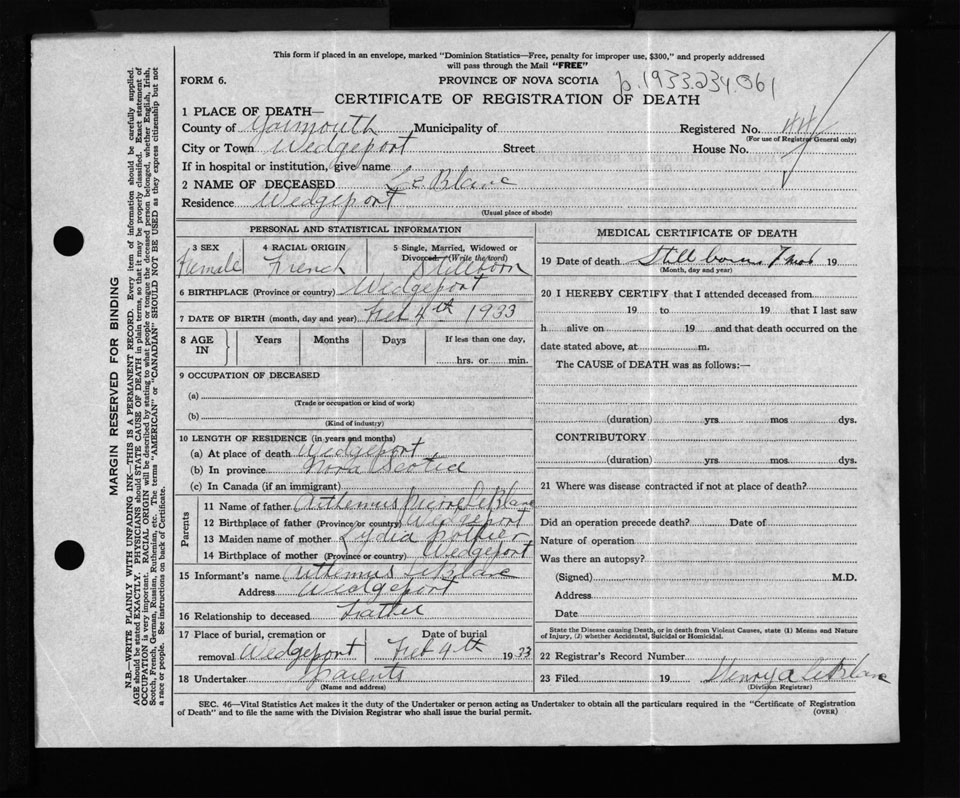 This form if placed in an envelope, marked "Dominion Statistics—Free, penalty for improper use, $300," and properly addressed
will pass through the Mail "FREE"
FORM 6.
PROVINCE OF NOVA SCOTIA
p.1933.234.061
CERTIFICATE OF REGISTRATION OF DEATH
1 PLACE OF DEATH—
County of Yarmouth Municipality of Registered No.
(For use of Registrar General only)
City or Town Wedgeport Street House No.
If in hospital or institution, give name
2 NAME OF DECEASED Le Blanc
Residence Wedgeport
(Usual place of abode)
PERSONAL AND STATISTICAL INFORMATION
3 SEX 4 RACIAL ORIGIN 5 Single, Married, Widowed or
Divorced (Write the word)
Female French Stillborn
6 BIRTHPLACE (Province or country) Wedgeport
7 DATE OF BIRTH (month, day and year) Feb 4th 1933
8 AGE IN Years Months Days If less than one day,
hrs. or min.
9 OCCUPATION OF DECEASED
(a)
(Trade or occupation or kind of work)
(b)
(Kind of industry)
10 LENGTH OF RESIDENCE (in years and months)
(a) At place of death Wedgeport
(b) In province Nova Scotia
(c) In Canada (if an immigrant)
Parents
11 Name of father Arthemus LeBlanc
12 Birthplace of father (Province or country) Wedgeport
13 Maiden name of mother Lydia Pothier
14 Birthplace of mother (Province or country) Wedgeport
15 Informant's name Arthemus LeBlanc
Address Wedgeport
16 Relationship to deceased Father
17 Place of burial, cremation or Date of burial
removal Wedgeport Feb 4th 1933
18 Undertaker parents
(Name and address)
MEDICAL CERTIFICATE OF DEATH
19 Date of death Still born 7 mos 19
(Month, day and year)
20 I HEREBY CERTIFY that I attended deceased from
19 to 19 that I last saw
h alive on 19 and that death occurred on the
date stated above, at m.
The CAUSE of DEATH was as follows:—
(duration) yrs. mos. dys.
CONTRIBUTORY
(duration) yrs. mos. dys.
21 Where was disease contracted if not at place of death?
Did an operation precede death? Date of
Nature of operation
Was there an autopsy?
(Signed) M.D.
Address
Date
State the Disease causing Death, or in death from Violent Causes, state (1) Means and Nature
of Injury, (2) whether Accidental, Suicidal or Homicidal.
22 Registrar's Record Number
23 Filed 19 Henry A LeBlanc
(Division Registrar)
SEC. 46—Vital Statistics Act makes it the duty of the Undertaker or person acting as Undertaker to obtain all the particulars required in the "Certificate of Registration
of Death" and to file the same with the Division Registrar who shall issue the burial permit.
(OVER)
MARGIN RESERVED FOR BINDING
N.B.—WRITE PLAINLY WITH UNFADING INK—THIS IS A PERMANENT RECORD. Every item of information should be carefully supplied.
AGE should be stated EXACTLY. PHYSICIANS should STATE CAUSE OF DEATH in plain terms, so that it may be properly classified. Exact statement of
OCCUPATION is very important. RACIAL ORIGIN will be described by stating to what people or tongue the deceased person belonged, whether English, Irish,
Scotch, French, German, Russian, Ruthenian, etc. The terms "AMERICAN" or "CANADIAN" SHOULD NOT BE USED as they express citizenship but not
a race or people. See instructions on back of Certificate.